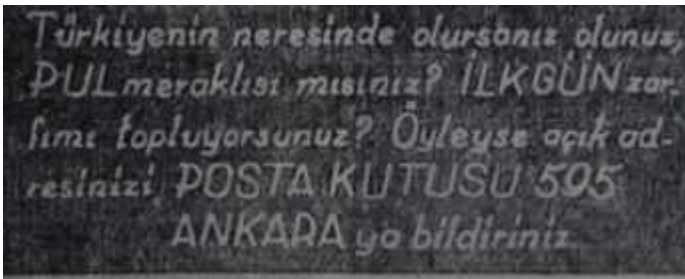 Türkiyenin neresinde olursanız olunuz,
PUL meraklısı mısınız? İLKGÜN zar-
fımı topluyorsunuz? Öyleyse açık ad-
resinizi POSTA KUTUSU 595
ANKARA ya bildiriniz